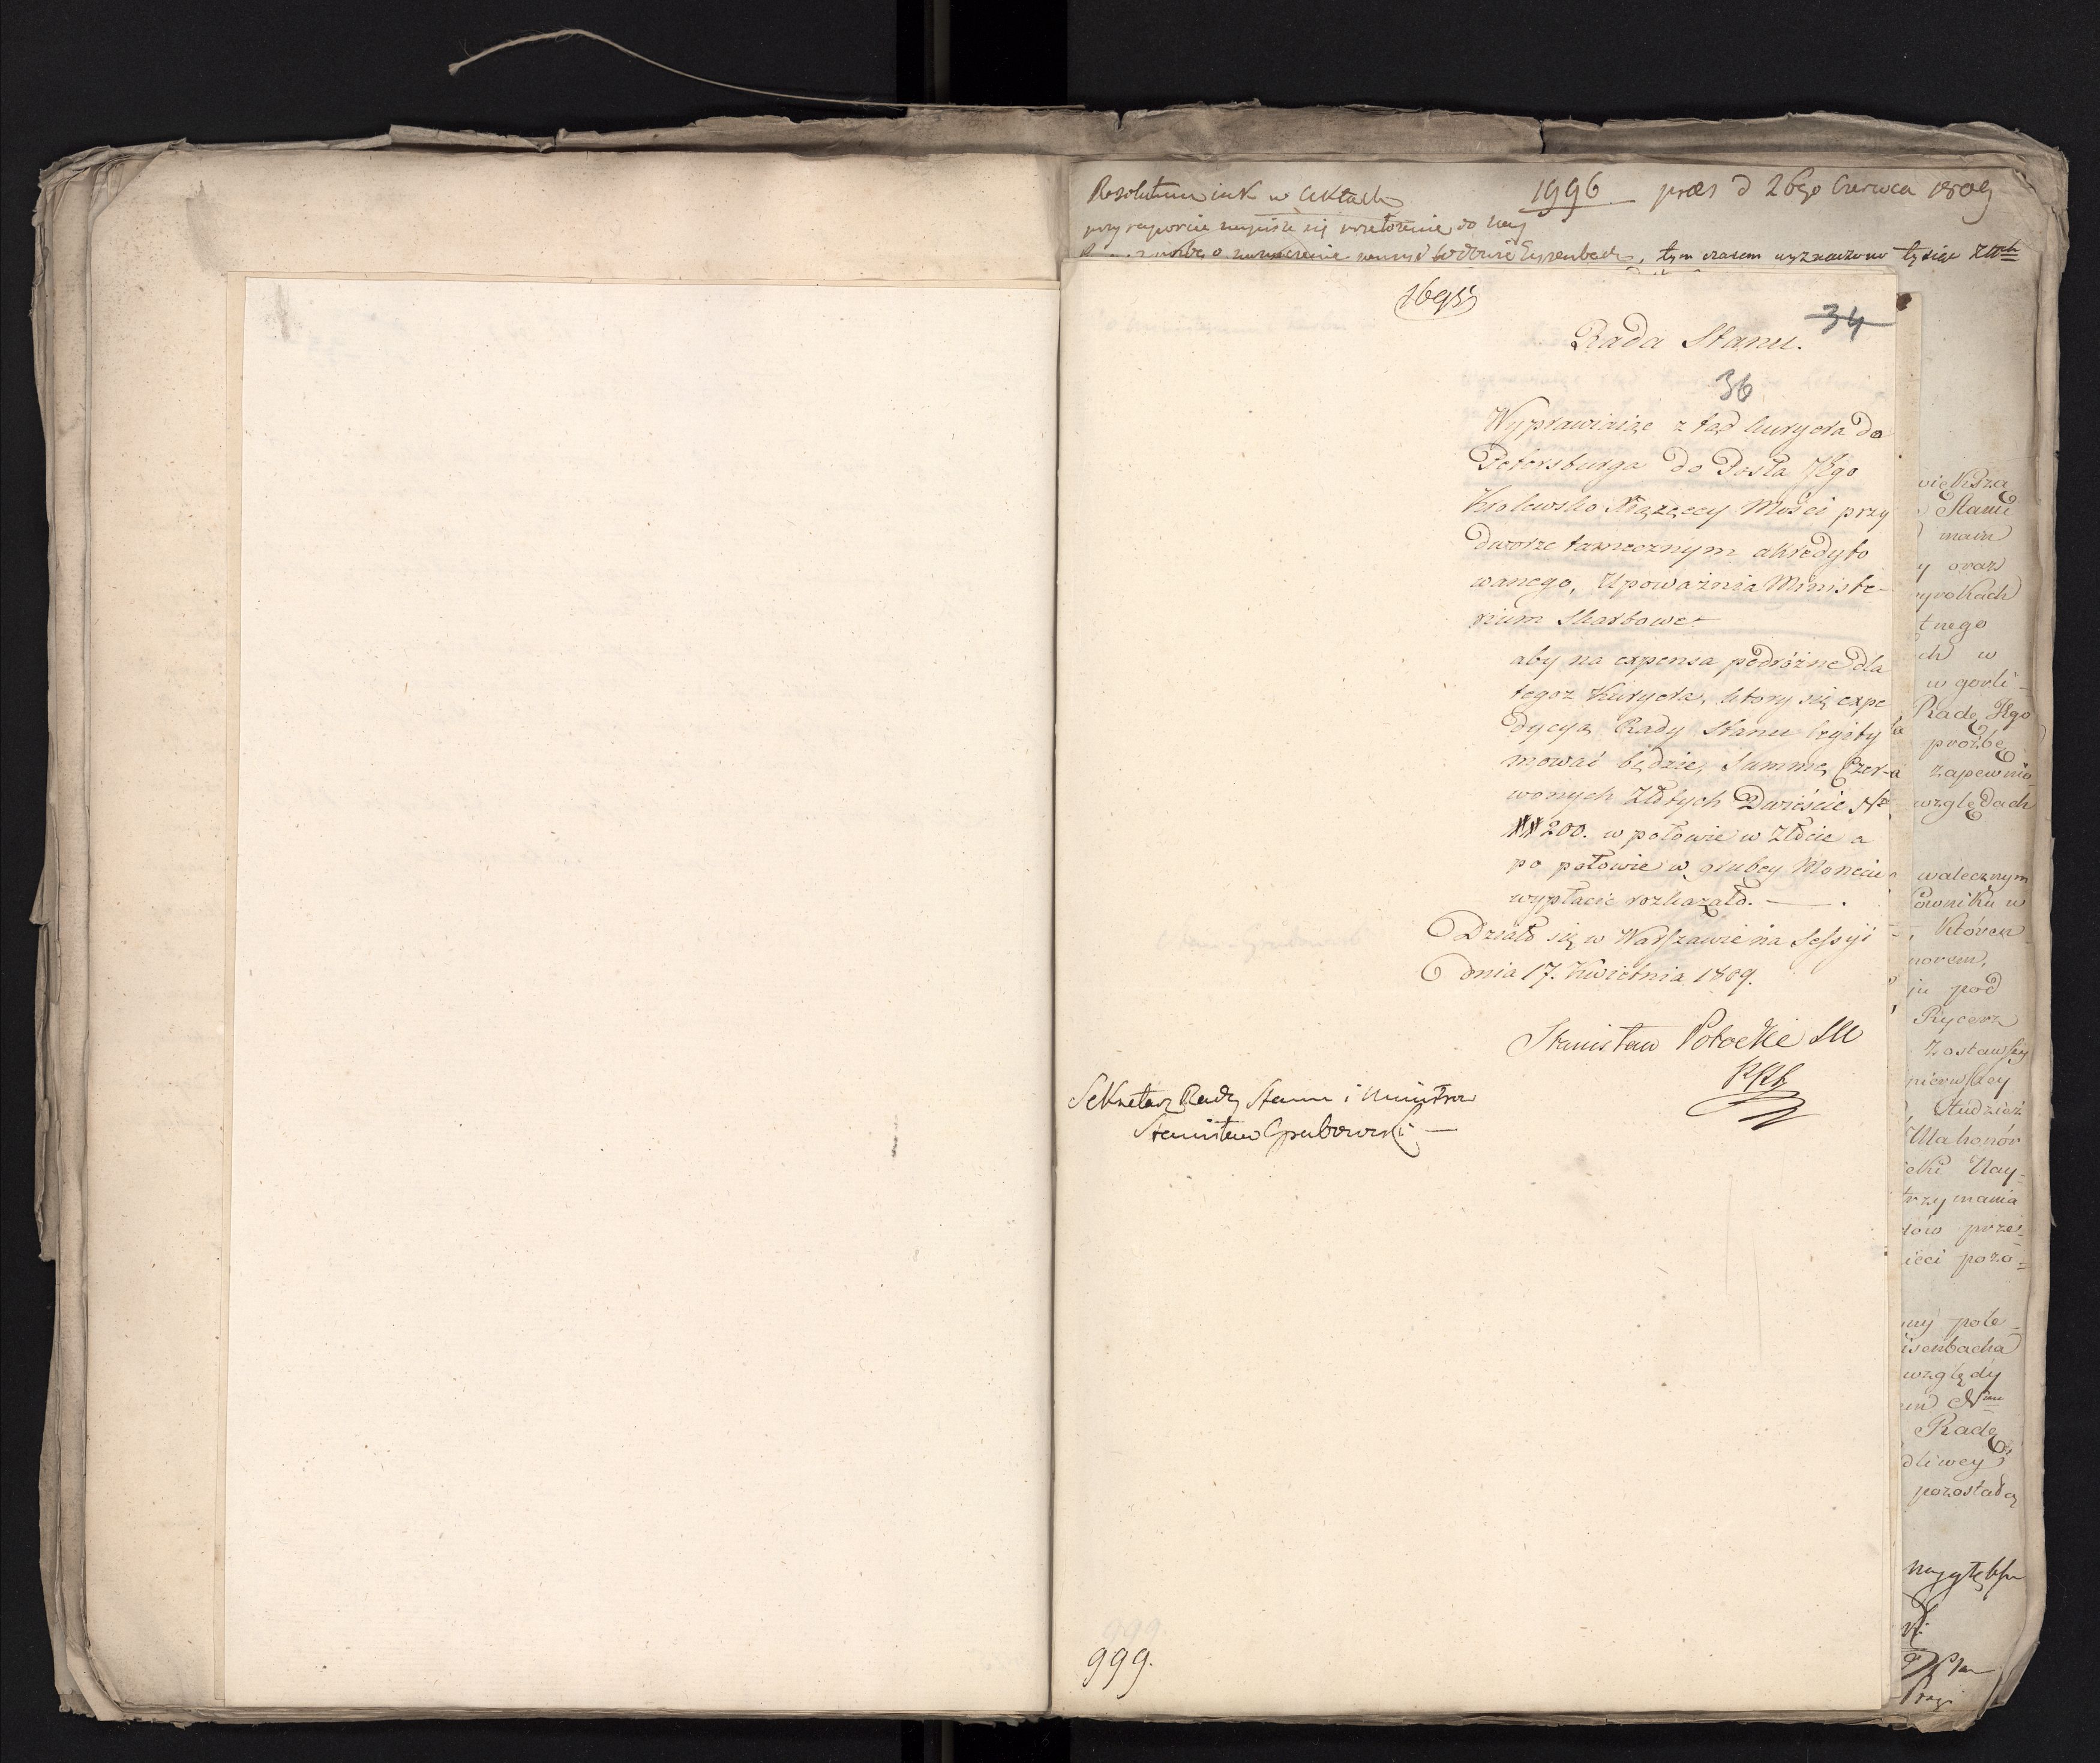 Resolutum jak w Aktach
1996 præs d 26go Czerwca 1809
przy raporcie napisze się przełożenie do
tym czasem wyznaczono tysiąc Złch
1695
34
Rada Stanu.
36
Wyprawiaiąc z tąd kuryera do
Petersburga do Posła JKgo
Krolewsko Xiążęcey Mości przy
dworze tamecznym akredyto
wanego, Upoważnia Ministe-
rium Skarbowe
aby na expensa podróżne dla
tegoz Kuryera, ktory się expe
dycyą Rady Stanu legity
mować będzie, Summę Czer-
wonych Złłtych Dwieście Nr
## 200. w połowie w Złocie a
po połowie w grubey Monecie
wypłacić rozkazało. —
Działo się w Warszawie na Sessyi
dnia 17. Kwietnia 1809.
Stanisław Potocki
Sekretarz Rady Stanu i Ministrów
Stanisław Grabowski —
999.
więKsza
Stanu
main
y oraz
yrokach
tnego
ch w
w gorli-
Radę JKgo
proźbę
zapewnio
względach
walecznym
ówniku w
, Którem
norem,
iu pod
Rycerz
Zostawszy
pierwszey
Studzież
Mahonór
elki Nay-
trzymania
łów prze-
ieci pozo-
ny pole-
isenbacha
względy
Radę
dliwey
pozostałą